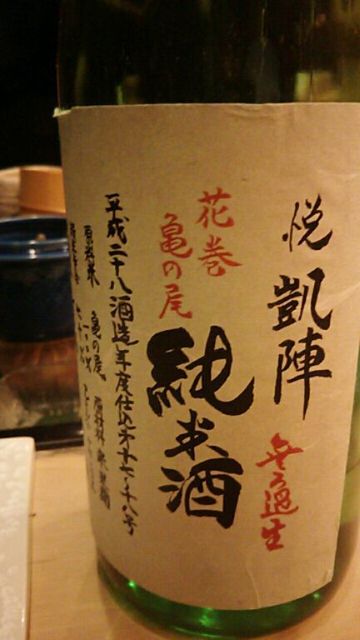 悦
凱陣
無ろ過生
花巻
亀の尾
純米酒
平成二十八酒造年度仕込み第十七、十八号
原料米 亀の尾 原材料 米、米麹